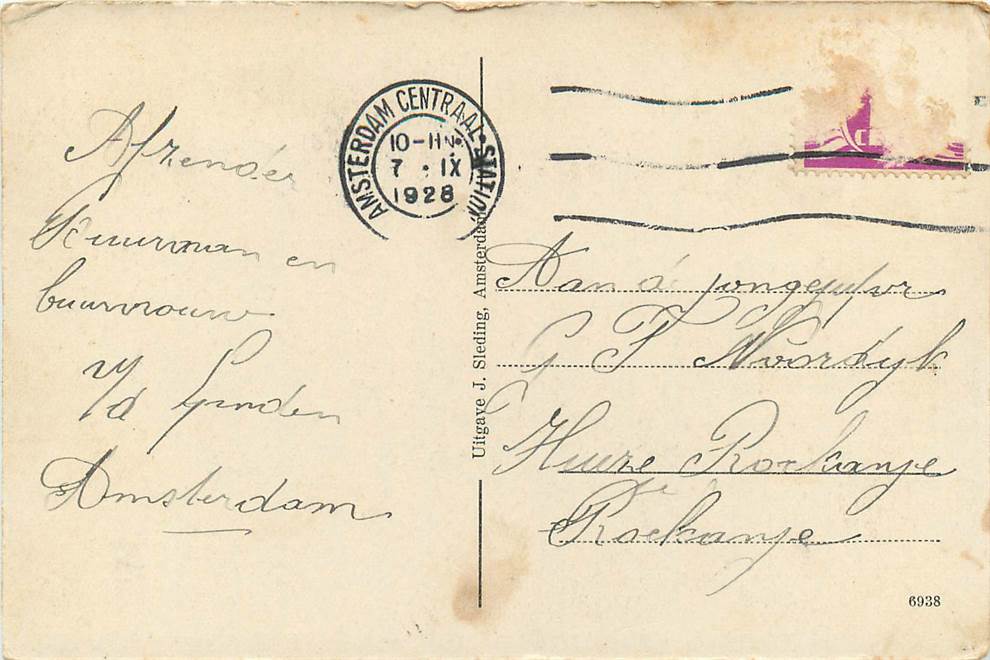 AMSTERDAM CENTRAAL-STATION
10-11 N.
7 . IX
1928
Afzender
Buurman en
buurvrouw
v/d Linden
Amsterdam
Uitgave J. Sleding, Amsterdam
Aan
G F Noordyk
Huize Rockanje
Te
Rockanje
6938